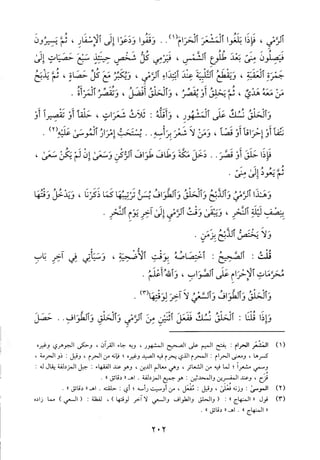 ٱلرَّمْيِ ، فَإِذَا بَلَغُوا ٱلْمَشْعَرَ ٱلْحَرَامَ(١).. وَقَفُوا وَدَعَوْا إِلَى ٱلْإِسْفَارِ ، ثُمَّ يَسِيرُونَ
فَيَصِلُونَ مِنىً بَعْدَ طُلُوعِ ٱلشَّمْسِ ، فَيَرْمِي كُلُّ شَخْصٍ حِينَئِذٍ سَبْعَ حَصَيَاتٍ إِلَى
جَمْرَةِ ٱلْعَقَبَةِ ، وَيَقْطَعُ ٱلتَّلْبِيَةَ عِنْدَ ٱبْتِدَاءِ ٱلرَّمْيِ ، وَيُكَبِّرُ مَعَ كُلِّ حَصَاةٍ ، ثُمَّ يَذْبَحُ
مَنْ مَعَهُ هَدْيٌ ، ثُمَّ يَحْلِقُ أَوْ يُقَصِّرُ ، وَٱلْحَلْقُ أَفْضَلُ ، وَتُقَصِّرُ ٱلْمَرْأَةُ .
وَٱلْحَلْقُ نُسُكٌ عَلَى ٱلْمَشْهُورِ ، وَأَقَلُّهُ : ثَلَاثُ شَعَرَاتٍ ، حَلْقاً أَوْ تَقْصِيراً أَوْ
نَتْفاً أَوْ إِحْرَاقاً أَوْ قَصّاً ، وَمَنْ لَا شَعْرَ بِرَأْسِهِ.. يُسْتَحَبُّ إِمْرَارُ ٱلْمُوسَىٰ عَلَيْهِ(٢) .
فَإِذَا حَلَقَ أَوْ قَصَّرَ.. دَخَلَ مَكَّةَ وَطَافَ طَوَافَ ٱلرُّكْنِ وَسَعَىٰ إِنْ لَمْ يَكُنْ سَعَىٰ ،
ثُمَّ يَعُودُ إِلَىٰ مِنىً .
وَهَـٰذَا ٱلرَّمْيُ وَٱلذَّبْحُ وَٱلْحَلْقُ وَٱلطَّوَافُ يُسَنُّ تَرْتِيبُهَا كَمَا ذَكَرْنَا ، وَيَدْخُلُ وَقْتُهَا
بِنِصْفِ لَيْلَةِ ٱلنَّحْرِ ، وَيَبْقَىٰ وَقْتُ ٱلرَّمْيِ إِلَىٰ آخِرِ يَوْمِ ٱلنَّحْرِ .
وَلَا يَخْتَصُّ ٱلذَّبْحُ بِزَمَنٍ .
قُلْتُ : ٱلصَّحِيحُ : ٱخْتِصَاصُهُ بِوَقْتِ ٱلْأُضْحِيَةِ ، وَسَيَأْتِي فِي آخِرِ بَابِ
مُحَرَّمَاتِ ٱلْإِحْرَامِ عَلَى ٱلصَّوَابِ ، وَٱللهُ أَعْلَمُ .
وَٱلْحَلْقُ وَٱلطَّوَافُ وَٱلسَّعْيُ لَا آخِرَ لِوَقْتِهَا(٣) .
وَإِذَا قُلْنَا : ٱلْحَلْقُ نُسُكٌ فَفَعَلَ ٱثْنَيْنِ مِنَ ٱلرَّمْيِ وَٱلْحَلْقِ وَٱلطَّوَافِ.. حَصَلَ
(١) المَشْعَر الحرام : بفتح الميم على الصحيح المشهور ، وبه جاء القرآن ، وحكى الجوهري وغيره
كسرها ، ومعنى الحرام : المحرم الذي يحرم فيه الصيد وغيره ؛ فإنه من الحرم ، وقيل : ذو الحرمة ،
وسمي مشعراً ؛ لما فيه من الشعائر ، وهي معالم الدين ، وهو عند الفقهاء : جبل المزدلفة يقال له :
قُزَح ، وعند المفسرين والمحدثين : هو جميع المزدلفة . اهـ « دقائق » .
(٢) الموسى : وزنه فُعْلى ، وقيل : مُفْعَل ، من أوسيت رأسه ؛ أي : حلقته . اهـ « دقائق » .
(٣) قول « المنهاج » : ( والحلق والطواف والسعي لا آخر لوقتها ) ، لفظة : ( السعي ) مما زاده
« المنهاج » . اهـ « دقائق » .
٢٠٢